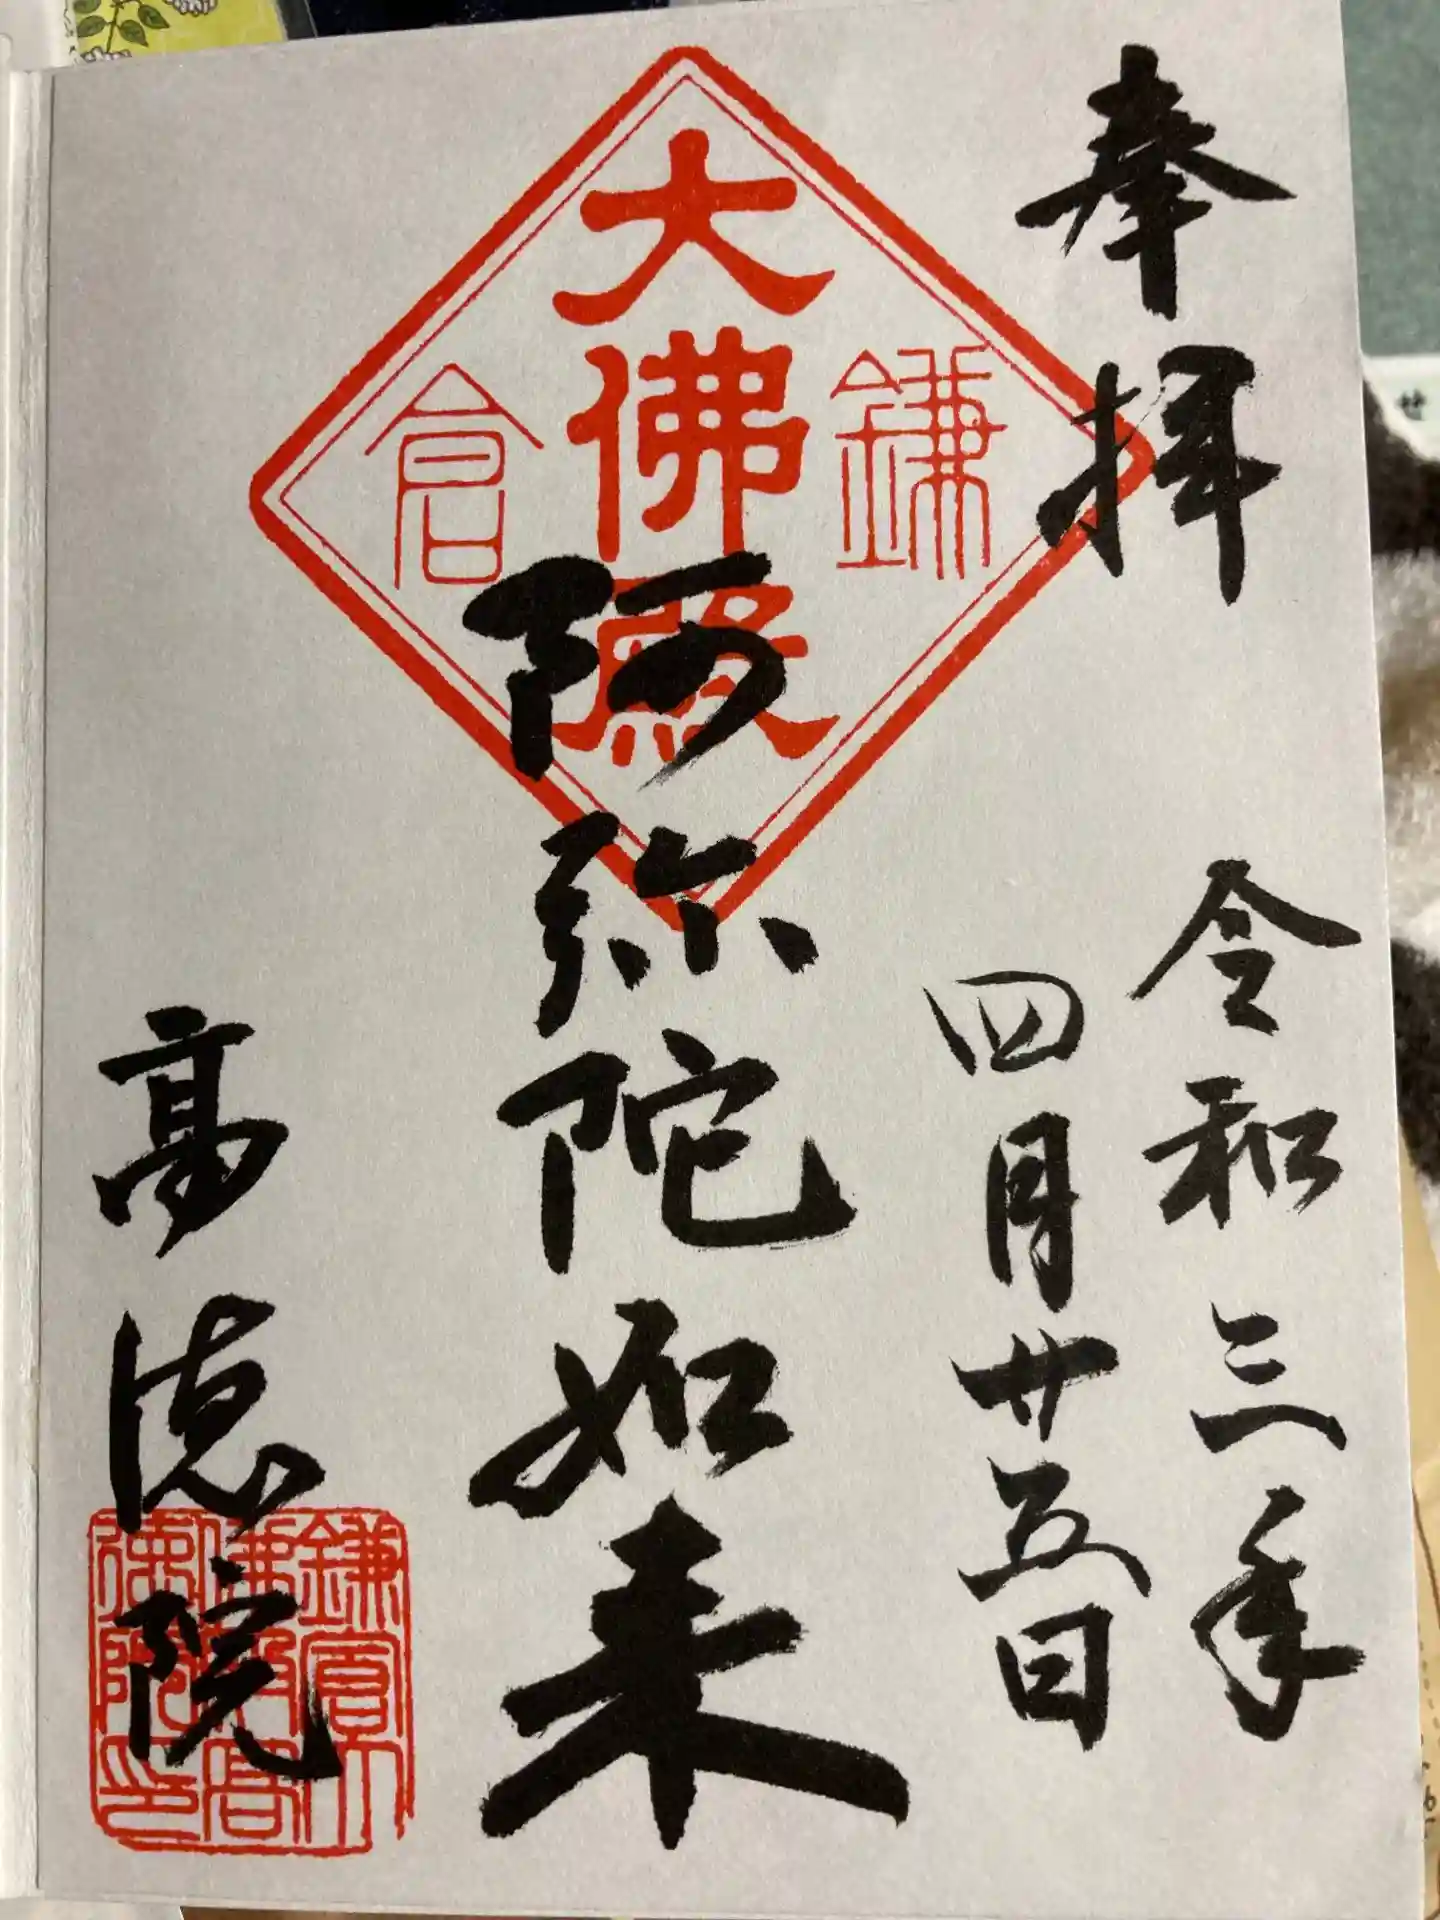 奉拝
令和三年
四月廿五日
鎌
大佛殿
倉
阿弥陀如来
高徳院
鎌倉大
佛殿高
徳院印
せ